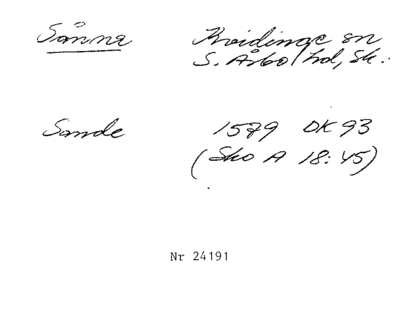 Sånna Kvidinge sn
S. Åsbo hd, Sk.
Sande 1579 DK 93
(Sko A 18:45)
Nr 24191